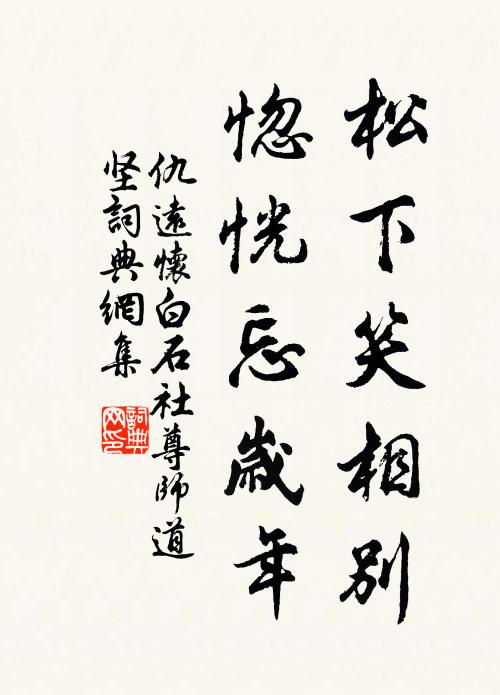 松下笑相別
惚恍忘歲年
仇遠懷白石社尊師道
坚詞典網集
詞典
网印